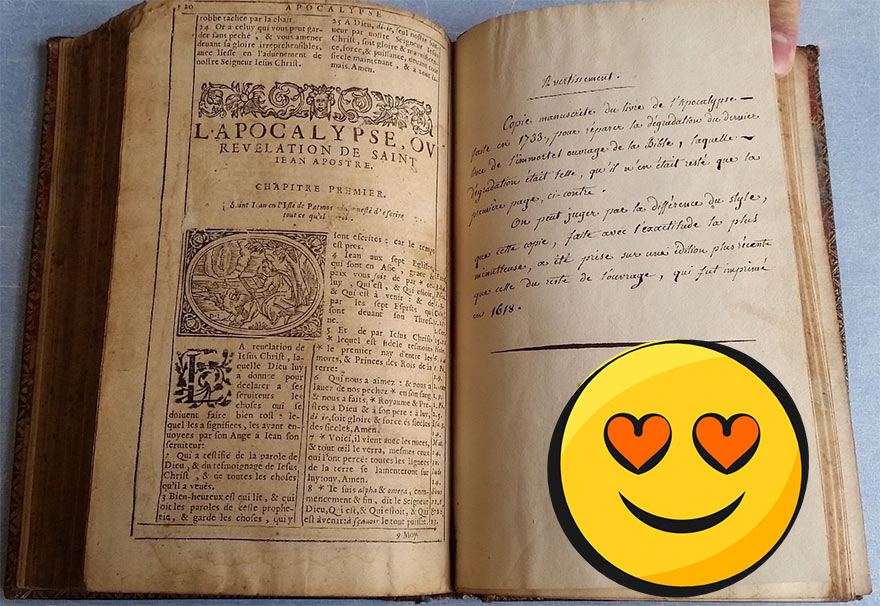 120 APOCALYPSE
robbe tachée par la chair.
24 Or à celuy qui vous peut gar-
der sans peché, & vous amener
deuant sa gloire irreprehensibles,
auec liesse en l'aduenement de
nostre Seigneur Iesus Christ.
25 A Dieu, di-je, seul nostre Sau-
ueur par nostre Seigneur Iesus
Christ, soit gloire & magnificen-
ce, force, & puissance, deuant tout
siecle maintenant, & à tous
mais. Amen.
L'APOCALYPSE, OV
REVELATION DE SAINT
IEAN APOSTRE.
CHAPITRE PREMIER.
Saint Iean en l'Isle de Patmos d'escrire
tout ce qu'il
LA reuelation de
Iesus Christ, la-
quelle Dieu luy
a donnée pour
declarer à ses
seruiteurs les
choses qui se
doiuent faire bien tost: le-
quel les a signifiees, les ayant en-
uoyees par son Ange à Iean son
seruiteur:
2 Qui a testifié de la parole de
Dieu, & du tesmoignage de Iesus
Christ, & de toutes les choses
qu'il a veuës.
3 Bien-heureux est qui lit, & qui
oit les paroles de ceste prophe-
tie, & garde les choses, qui y
sont escrites: car le temps
est pres.
4 Iean aux sept Eglises
qui sont en Asie, grace &
paix vous soit de par ce-
luy, Qui est, & Qui estoit,
& Qui est à venir: & de
par les sept Esprits qui
sont deuant son Thros-
ne.
5 Et de par Iesus Christ
* lequel est fidele tesmoin
le premier nay d'entre les
morts, & Princes des Rois de la
terre:
6 Qui nous a aimez: & nous a
lauez de nos pechez * en son sang
& nous a faits, * Royaume & Pre-
stres à Dieu & à son pere: à luy,
di-je, soit gloire & force és siecles
des siecles, Amen.
7 * Voici, il vient auec les nuees,
& tout œil le verra, mesmes ceux
qui l'ont percé: toutes les lignees
de la terre se lamenteront sur
luy: ouy, Amen.
8 * Ie suis alpha & omega, com-
mencement & fin, dit le Seigneur
Dieu, Qui est, & Qui estoit, & Qui
est à venir, à sçauoir le tout puissant.
9 Moy
Avertissement.
Copie manuscrite du livre de l'Apocalypse
faite en 1733, pour réparer la dégradation du dernier
livre de l'immortel ouvrage de la Bible, laquelle
dégradation était telle, qu'il n'en était resté que la
première page, ci-contre.
On peut juger par la différence du style,
que cette copie, faite avec l'exactitude la plus
minutieuse, a été prise sur une édition plus récente
que celle du reste de l'ouvrage, qui fut imprimé
en 1618.